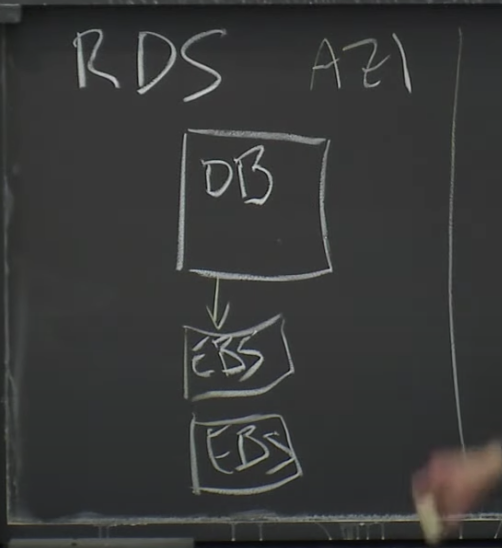 RDS AZ1
DB
EBS
EBS